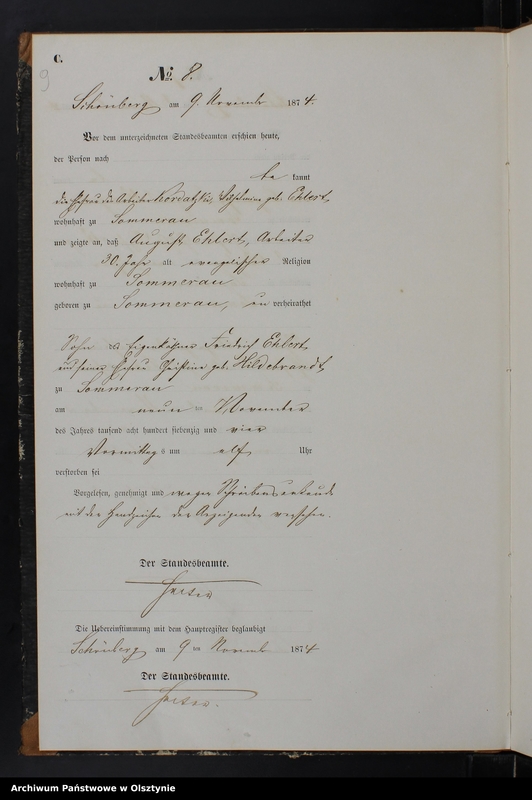 C.
9
No. 8.
Schönberg am 9. November 1874.
Vor dem unterzeichneten Standesbeamten erschien heute,
der Person nach
be kannt
die Ehefrau des Arbeiter Kordatzki, geb. Ehlert,
wohnhaft zu Sommerau
und zeigte an, daß August Ehlert, Arbeiter
30. Jahr alt evangelischer Religion
wohnhaft zu Sommerau
geboren zu Sommerau, un verheirathet
Sohn des Eigenkäthner Friedrich Ehlert
und seiner Ehefrau Christine geb. Hildebrandt
zu Sommerau
am neun ten November
des Jahres tausend acht hundert siebenzig und vier
Vormittag s um elf Uhr
verstorben sei
Vorgelesen, genehmigt und wegen Schreibensunkunde
mit dem Handzeichen der Anzeigenden versehen.
Der Standesbeamte.
Die Uebereinstimmung mit dem Hauptregister beglaubigt
Schönberg am 9 ten November 1874
Der Standesbeamte.
Archiwum Państwowe w Olsztynie